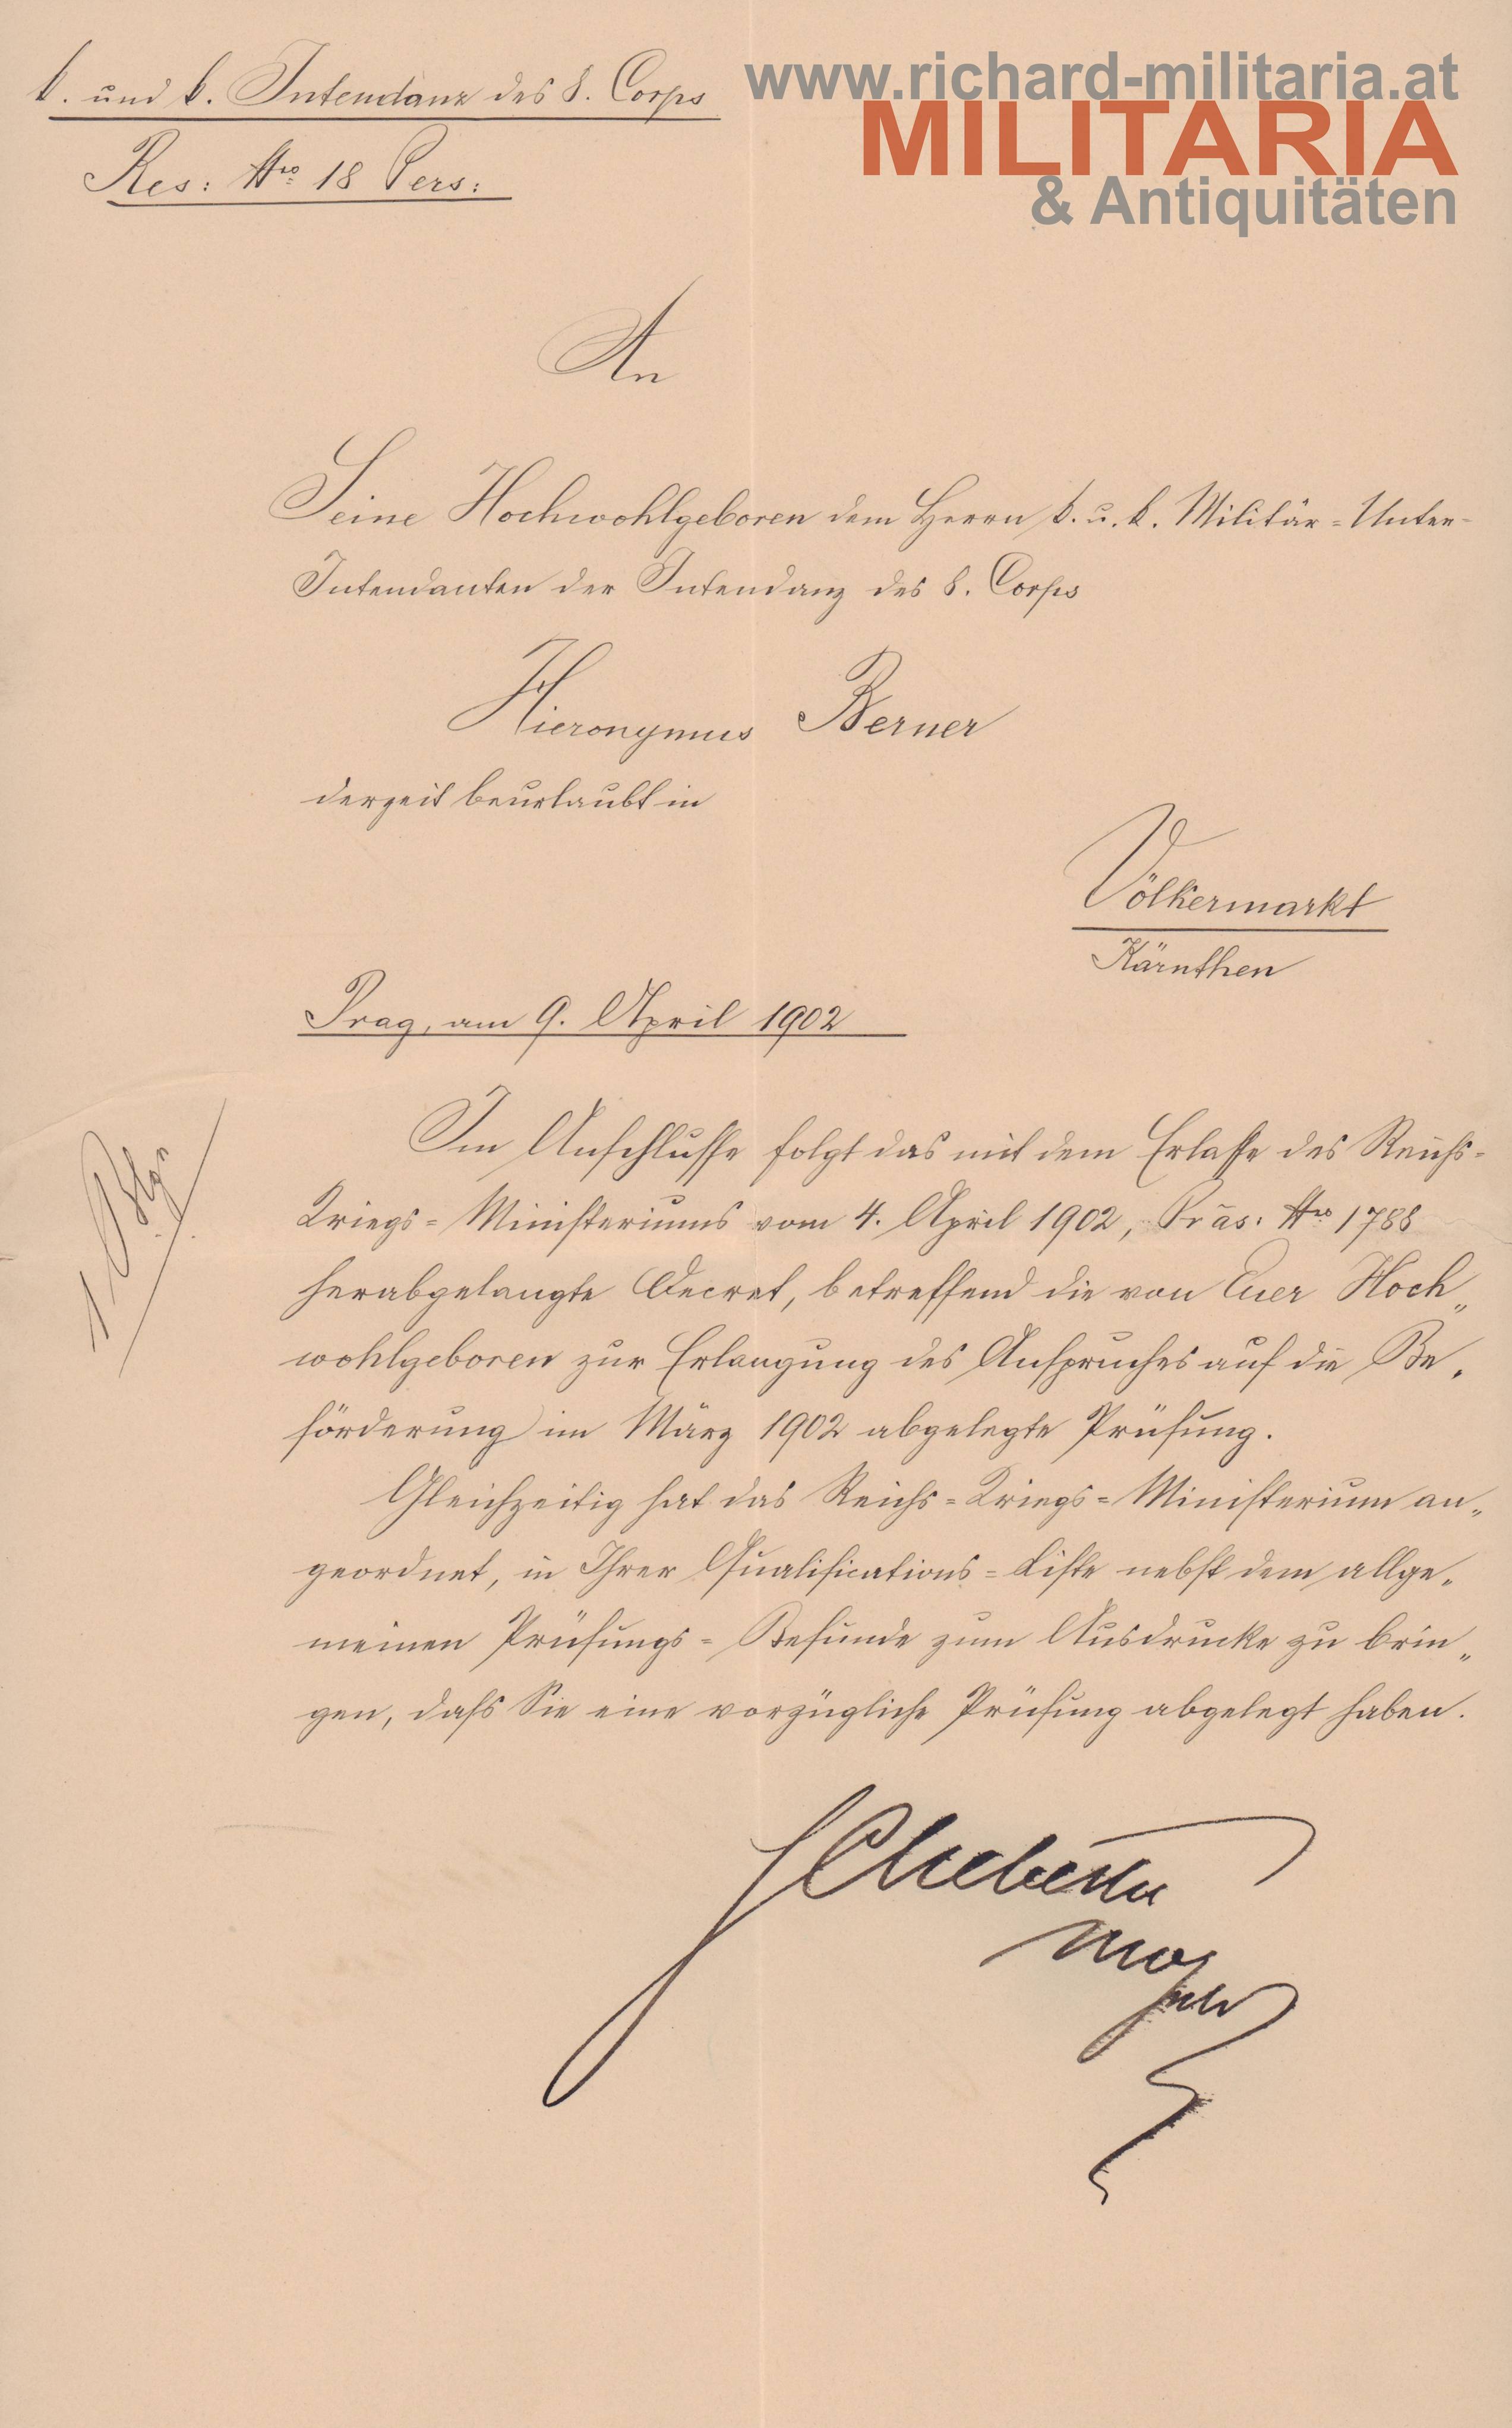 www.richard-militaria.at
MILITARIA
& Antiquitäten
k. und k. Intendanz des 8. Corps
Res: Nro 18 Pers:
An
Seine Hochwohlgeboren dem Herrn k. u. k. Militär=Unter-
Intendanten der Intendanz des 8. Corps
Hieronymus Berner
derzeit beurlaubt in
Völkermarkt
Kärnthen
Prag, am 9. April 1902
Im Anschlusse folgt das mit dem Erlasse des Reichs=
Kriegs=Ministeriums vom 4. April 1902, Präs: Nro 1788
herabgelangte Decret, betreffend die von Euer Hoch„
wohlgeboren zur Erlangung des Anspruches auf die Be„
förderung im März 1902 abgelegte Prüfung.
Gleichzeitig hat das Reichs=Kriegs=Ministerium an„
geordnet, in Ihrer Qualifications=Liste nebst dem allge„
meinen Prüfungs=Befunde zum Ausdrucke zu brin„
gen, dass Sie eine vorzügliche Prüfung abgelegt haben.